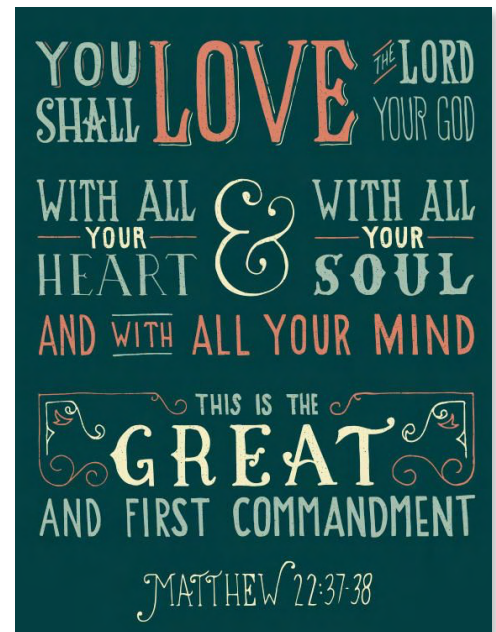 YOU SHALL LOVE THE LORD YOUR GOD
WITH ALL YOUR HEART & WITH ALL YOUR SOUL
AND WITH ALL YOUR MIND
THIS IS THE
GREAT
AND FIRST COMMANDMENT
MATTHEW 22:37-38